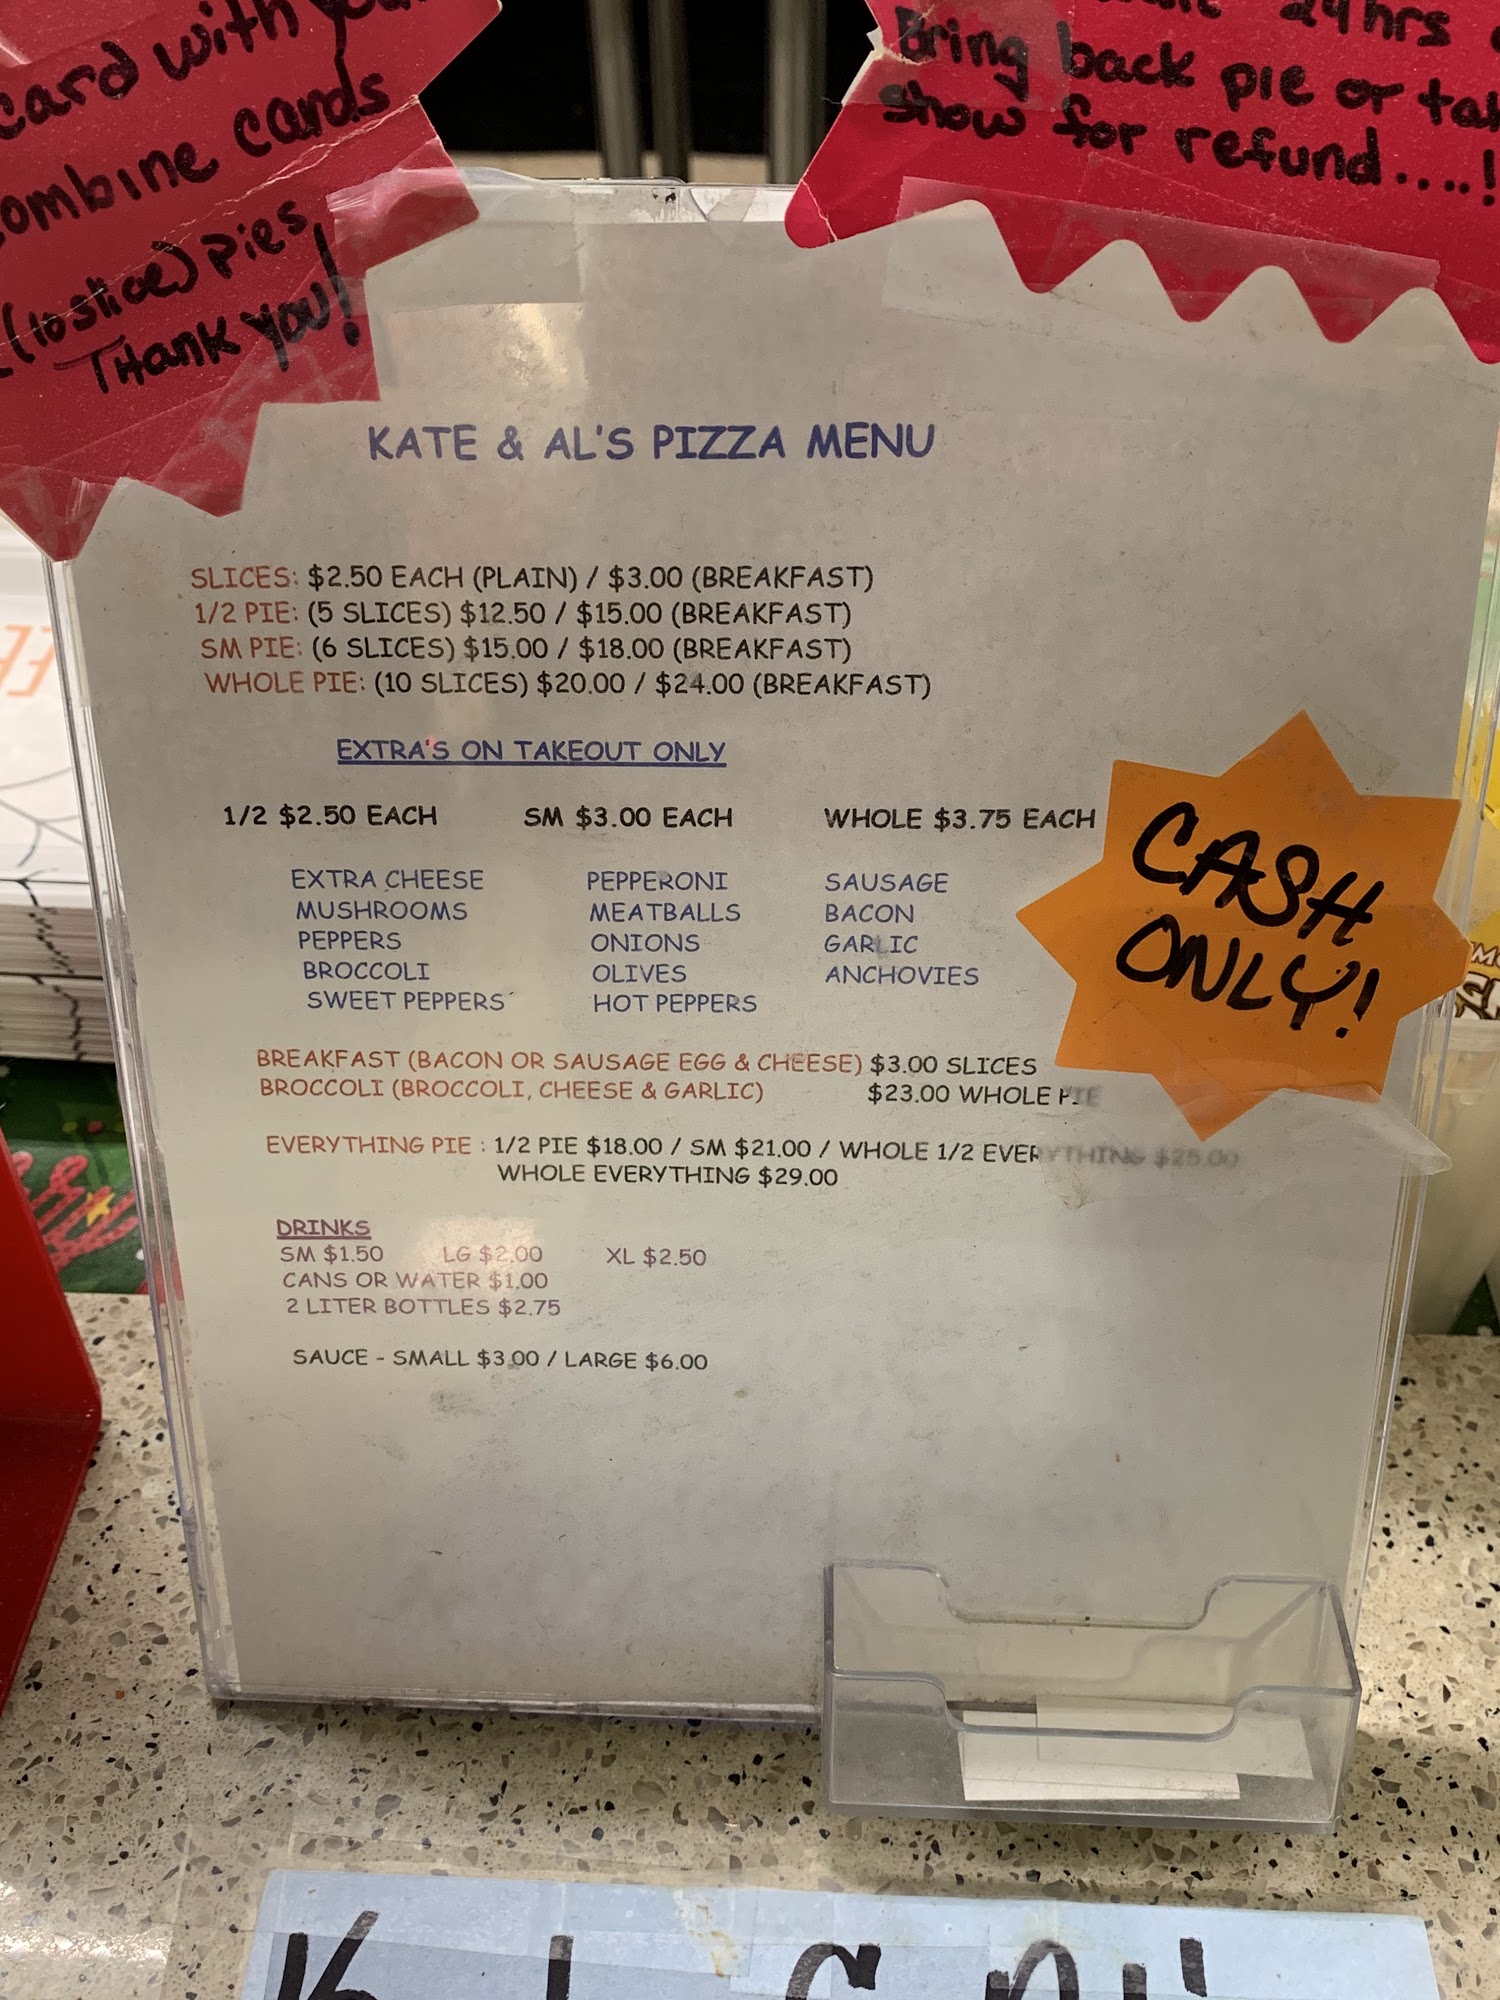 card with your
combine cards
(10 slice) pies
Thank you!
24hrs
Bring back pie or
show for refund....!
KATE & AL'S PIZZA MENU
SLICES: $2.50 EACH (PLAIN) / $3.00 (BREAKFAST)
1/2 PIE: (5 SLICES) $12.50 / $15.00 (BREAKFAST)
SM PIE: (6 SLICES) $15.00 / $18.00 (BREAKFAST)
WHOLE PIE: (10 SLICES) $20.00 / $24.00 (BREAKFAST)
EXTRA'S ON TAKEOUT ONLY
1/2 $2.50 EACH SM $3.00 EACH WHOLE $3.75 EACH
EXTRA CHEESE PEPPERONI SAUSAGE
MUSHROOMS MEATBALLS BACON
PEPPERS ONIONS GARLIC
BROCCOLI OLIVES ANCHOVIES
SWEET PEPPERS HOT PEPPERS
CASH
ONLY!
BREAKFAST (BACON OR SAUSAGE EGG & CHEESE) $3.00 SLICES
BROCCOLI (BROCCOLI, CHEESE & GARLIC) $23.00 WHOLE PIE
EVERYTHING PIE : 1/2 PIE $18.00 / SM $21.00 / WHOLE 1/2 EVERYTHING $25.00
WHOLE EVERYTHING $29.00
DRINKS
SM $1.50 LG $2.00 XL $2.50
CANS OR WATER $1.00
2 LITER BOTTLES $2.75
SAUCE - SMALL $3.00 / LARGE $6.00